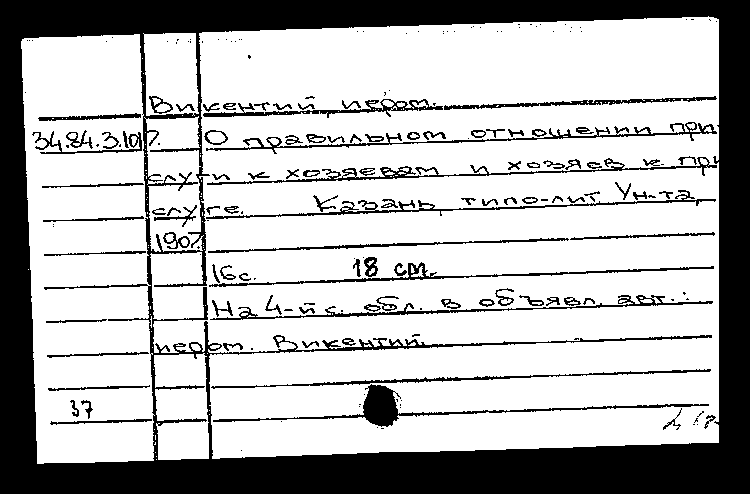 Викентий, иером.
34.84.3.107. О правильном отношении при
слуги к хозяевам и хозяев к при
слуге. Казань, типо-лит Ун-та,
1907
16с. 18 см.
На 4-й с. обл. в объявл. авт.:
иером. Викентий.
37